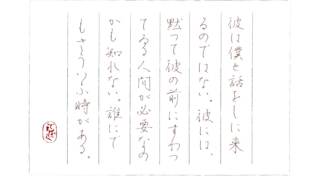 彼は僕と話をしに来
るのではない。彼には、
黙って彼の前にすわつ
てゐる人間が必要なの
かも知れない。誰にで
もさういふ時がある。